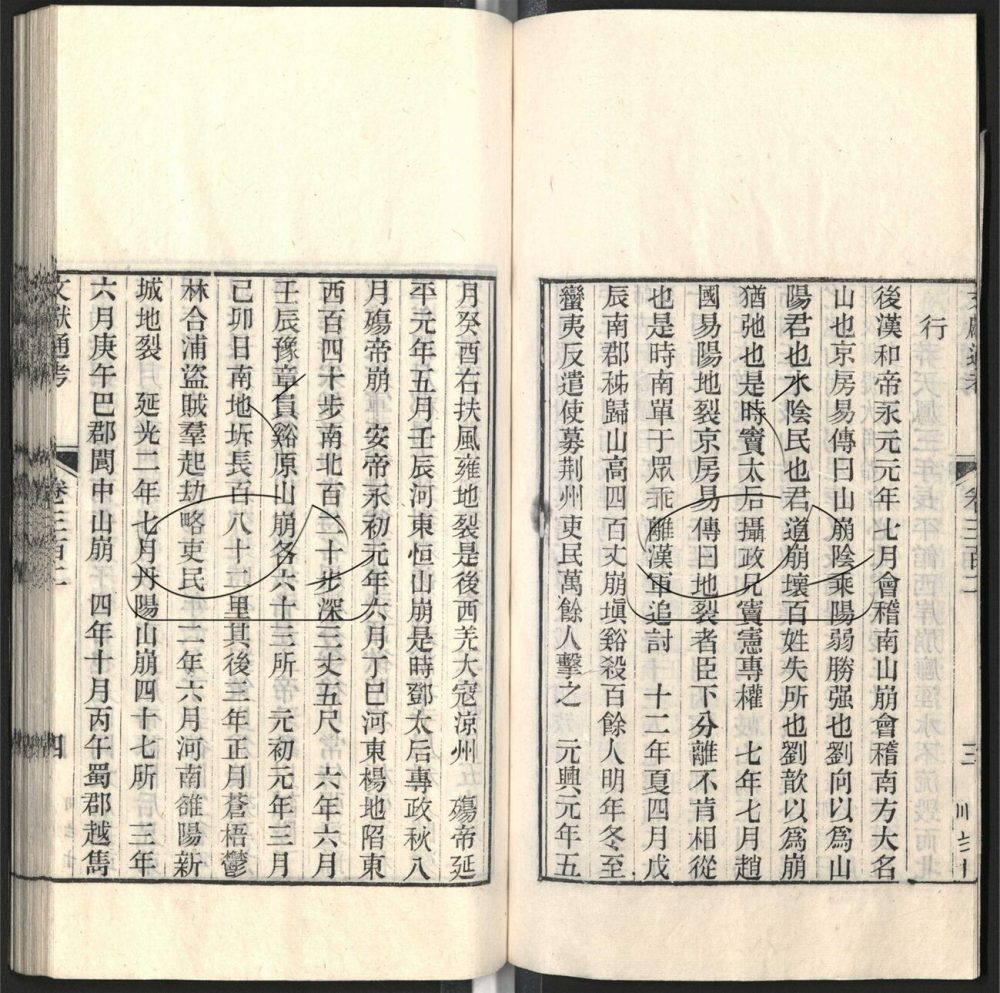 行
後漢和帝永元元年七月會稽南山崩會稽南方大名
山也京房易傳曰山崩陰乘陽弱勝强也劉向以爲山
陽君也水陰民也君道崩壞百姓失所也劉歆以爲崩
猶弛也是時竇太后攝政兄竇憲專權 七年七月趙
國易陽地裂京房易傳曰地裂者臣下分離不肯相從
也是時南單于眾乖離漢軍追討 十二年夏四月戊
辰南郡秭歸山高四百丈崩塡谿殺百餘人明年冬至
蠻夷反遣使募荆州吏民萬餘人擊之 元興元年五
月癸酉右扶風雍地裂是後西羌大寇涼州 殤帝延
平元年五月壬辰河東恒山崩是時鄧太后專政秋八
月殤帝崩 安帝永初元年六月丁巳河東楊地陷東
西百四十步南北百二十步深三丈五尺 六年六月
壬辰豫章員谿原山崩各六十三所 元初元年三月
己卯日南地坼長百八十二里其後三年正月蒼梧鬱
林合浦盜賊羣起劫略吏民 二年六月河南雒陽新
城地裂 延光二年七月丹陽山崩四十七所 三年
六月庚午巴郡閬中山崩 四年十月丙午蜀郡越雋
文獻通考 卷三百二 四